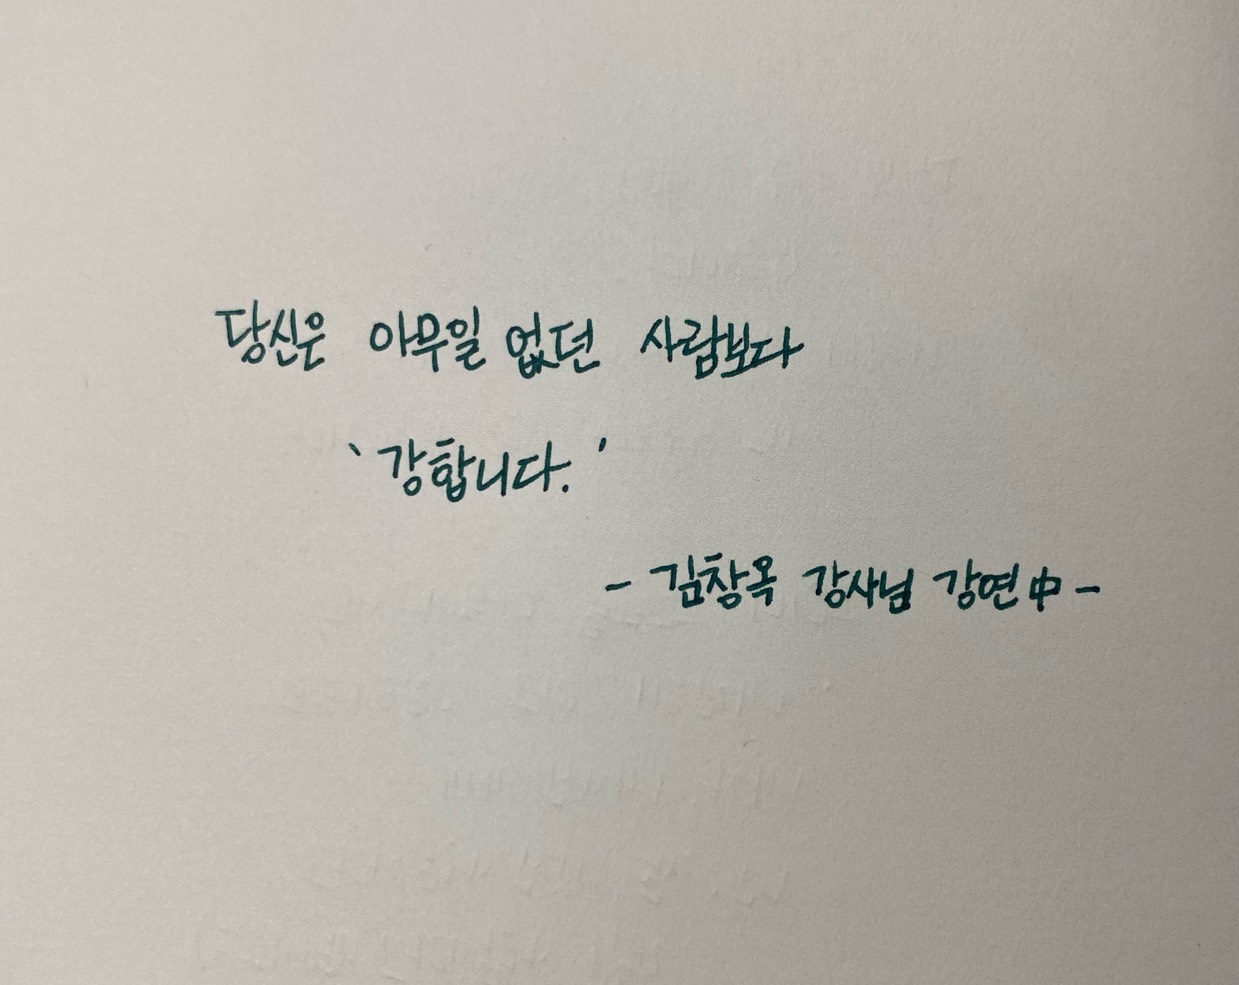 당신은 아무일 없던 사람보다
'강합니다.'
- 김창옥 강사님 강연中 -